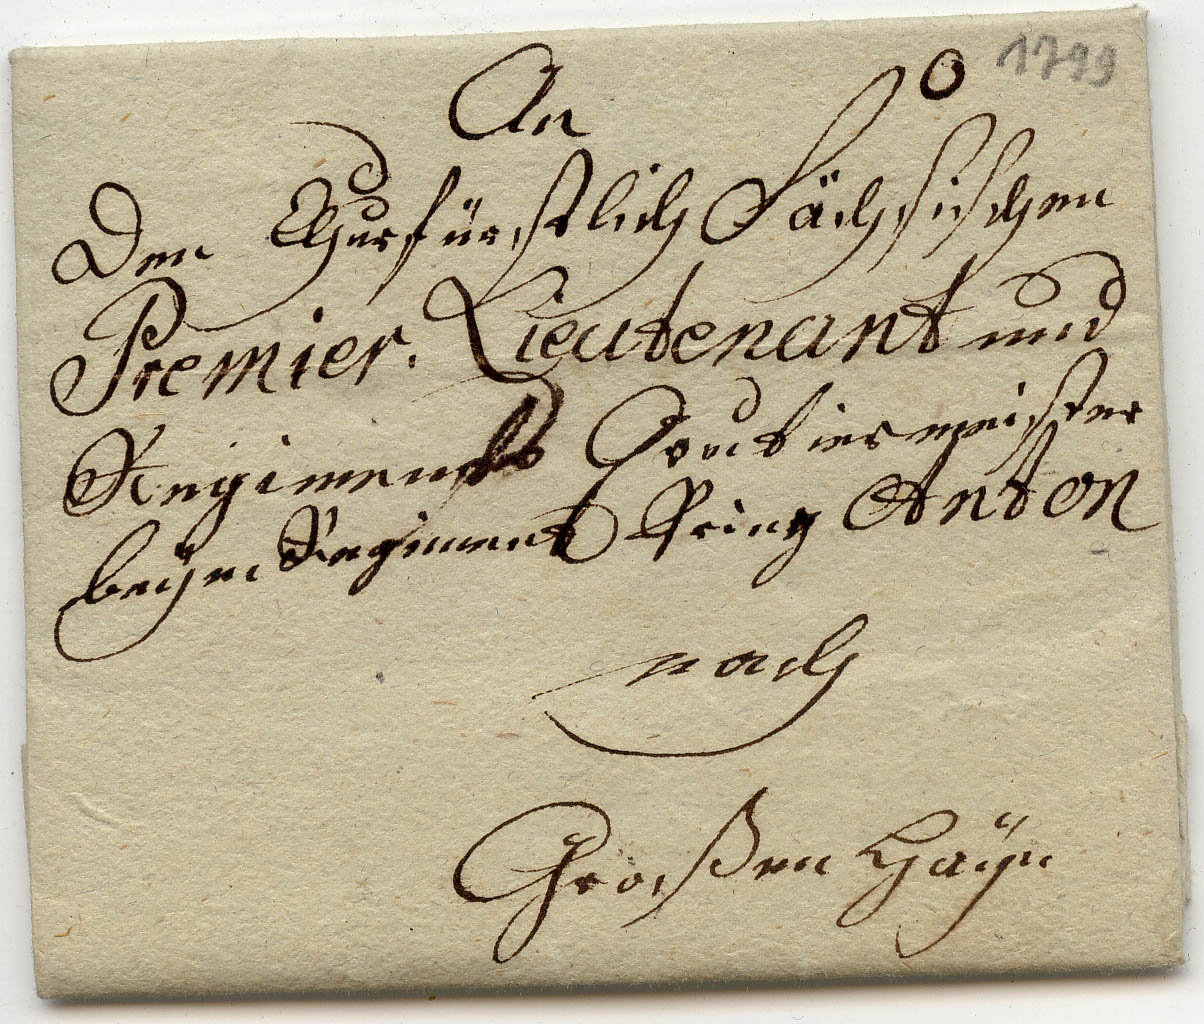 1799
An
Den Churfürstlich Sächsischen
Premier. Lieutenant und
Regiments Quartiermeister
beÿm Regiment Prinz Anton
nach
Großen Haÿn